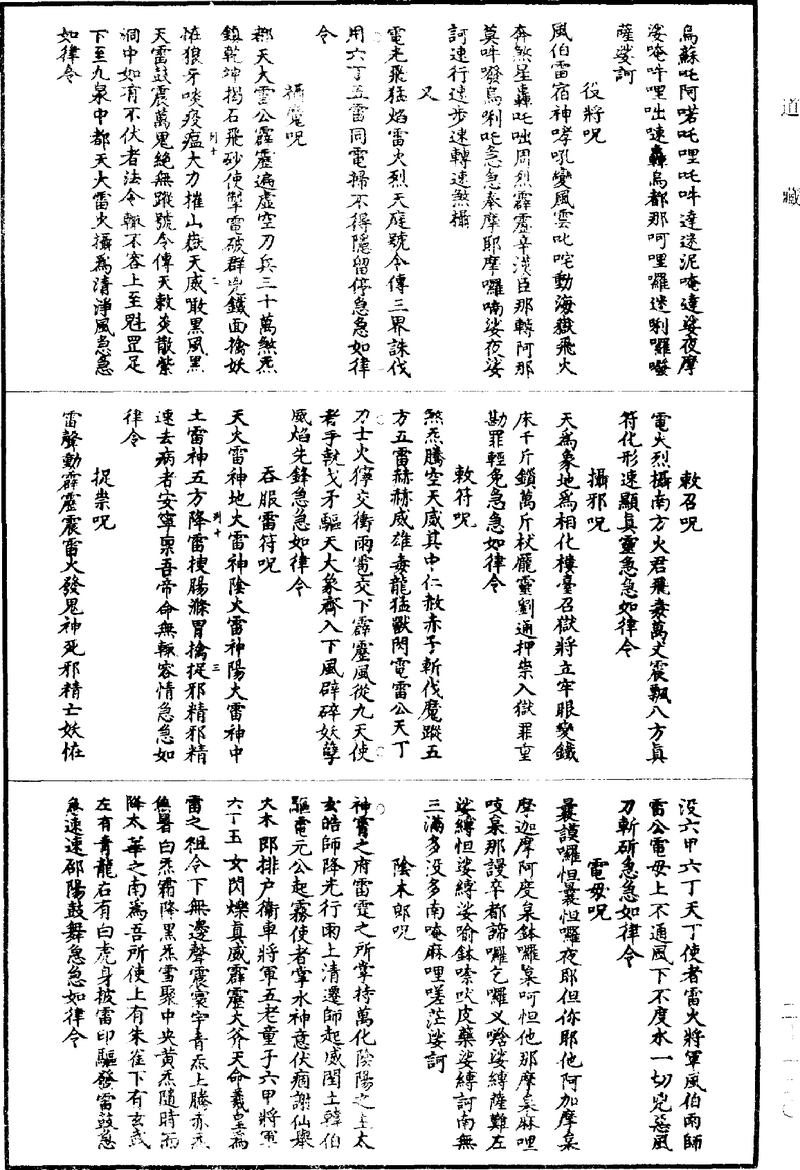 道藏
烏蘇吒阿喏吒哩吒吽達達泥唵達娑夜摩
娑唵吽哩出唛轟烏都那呵哩囉迷唎囉
薩娑訶
役將呪
風伯雷宿神哮吼變風雲叱咤動海嶽飛火
奔煞星轟吒咄周烈霹靂辛漢臣那轉阿那
莫吽撥烏唎吒急急奉摩耶摩囉喃娑夜娑
訶速行速步速轉速煞攝
又
電光飛猛焰雷火烈天庭號令傳三界誅伐
用六丁五雷同電掃不得隱留停急急如律
令
攝魔呪
都天大雷公霹靂遍虛空刀兵三十萬煞炁
鎮乾坤揭石飛砂使掣雷破群兇鐵面擒妖
恠狼牙啖疫瘟大力摧山嶽天威散黑風黑
天雷鼓震萬鬼絕無蹤號令傳天敕炎散紫
洞中如有不伏者法令輒不容上至魁罡足
下至九泉中都天大雷火攝為清淨風急急
如律令
敕召呪
電火烈攝南方火君飛毒萬丈震飄八方真
符化形速顯真靈急急如律令
攝邪呪
天為象地為相化樓臺召獄將立牢眼變鐵
床千斤鎖萬斤杖龐靈劉通押祟入獄罪重
勘罪輕免急急如律令
敕符呪
煞炁騰空天威其中仁赦赤子斬伐魔蹤五
方五雷赫赫威雄毒龍猛獸閃電雷公天丁
力士火獰交衝雨雹交下霹靂風從九天使
者手執戈矛驅天大象齊入下風辟碎妖孽
威焰先鋒急急如律令
吞服雷符呪
天火雷神地火雷神陰火雷神陽火雷神中
土雷神五方降雷梗腸滌胃擒捉邪精邪精
速去病者安寧稟吾帝命無輒容情急急如
律令
捉祟呪
雷聲動霹靂震雷火發鬼神死邪精亡妖恠
沒六甲六丁天丁使者雷火將軍風伯雨師
雷公電母上不通風下不度水一切兇惡風
刀斬斫急急如律令
電母呪
曩謨囉怛曩怛囉夜耶但你耶他阿加摩枲
摩迦摩阿度枲鉢囉枲呵怛他那摩枲麻哩
吱枲那謾卒都諦囉乞囉义唦娑縛薩難左
娑縛怛娑縛娑喻鉢嗦吠皮藥娑縛訶南無
三滿多没多南唵麻哩嗟茫娑訶
陰木郎呪
神霄之府雷霆之所掌持萬化陰陽之主太
玄皓師降先行雨上清遷師起威閏土韓伯
驅電元公起霧使者掌水神意伏痼謝仙舉
火木郎排户衛車將軍五老童子六甲將軍
六丁玉女閃爍真威霹靂大斧天命羲皇為
雷之祖令下無邊聲震寰宇青炁上騰赤炁
無暑白炁霜降黑炁雪聚中央黃炁隨時而
降太華之南為吾所使上有朱雀下有玄武
左有青龍右有白虎身披雷印驅發雷鼓急
急速速邵陽鼓舞急急如律令